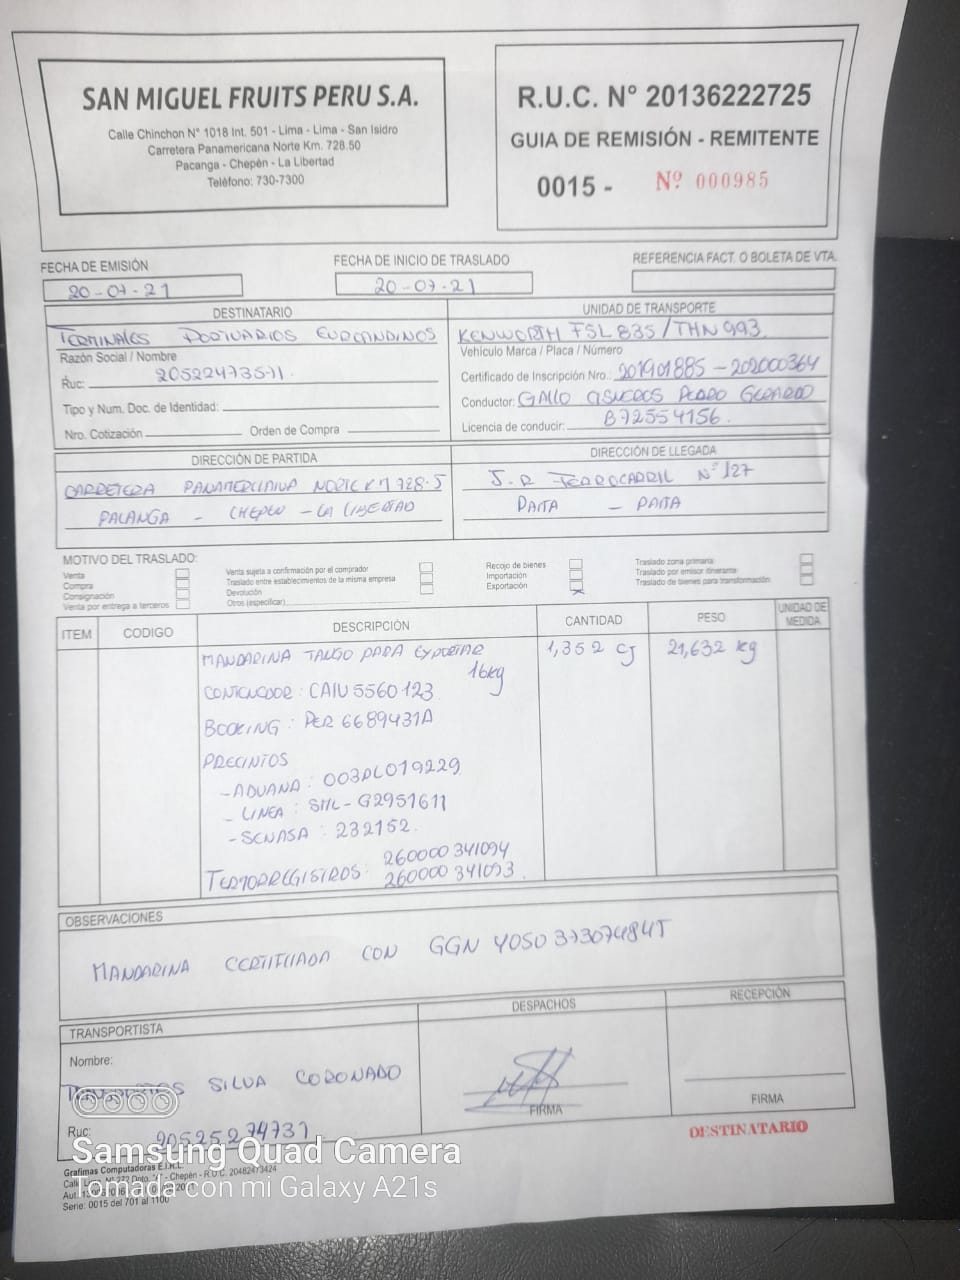 SAN MIGUEL FRUITS PERU S.A.
Calle Chinchon N° 1018 Int. 501 - Lima - Lima - San Isidro
Carretera Panamericana Norte Km. 728.50
Pacanga - Chepén - La Libertad
Teléfono: 730-7300
R.U.C. N° 20136222725
GUIA DE REMISIÓN - REMITENTE
0015 - Nº 000985
FECHA DE EMISIÓN
20-07-21
FECHA DE INICIO DE TRASLADO
20-07-21
REFERENCIA FACT. O BOLETA DE VTA.
DESTINATARIO
TERMINALES PORTUARIOS EUROANDINOS
Razón Social / Nombre
Ruc: 20522473571.
Tipo y Num. Doc. de Identidad:
Nro. Cotización Orden de Compra
UNIDAD DE TRANSPORTE
KENWORTH F5L 835 / THN 993
Vehículo Marca / Placa / Número
Certificado de Inscripción Nro.: 201901885 - 202000364
Conductor: GALLO CISNEROS PEDRO GERARDO
Licencia de conducir: B72554156.
DIRECCIÓN DE PARTIDA
CARRETERA PANAMERICANA NORTE KM 728.5
PALANGA - CHEPEN - LA LIBERTAD
DIRECCIÓN DE LLEGADA
J.R FERROCARRIL N° 127
PAITA - PAITA
MOTIVO DEL TRASLADO:
Venta
Compra
Consignación
Venta por entrega a terceros
Venta sujeta a confirmación por el comprador
Traslado entre establecimientos de la misma empresa
Devolución
Otros (especificar)
Recojo de bienes
Importación
Exportación X
Traslado zona primaria
Traslado por emisor itinerante
Traslado de bienes para transformación
ITEM CODIGO DESCRIPCIÓN CANTIDAD PESO UNIDAD DE MEDIDA
MANDARINA TANGO PARA EXPORTAR 1,352 CJ 21,632 kg
16kg
CONTENEDOR: CAIU 5560123
BOOKING: PER 6689431A
PRECINTOS
- ADUANA: 003PL019229
- LINEA: SML-G2951611
- SENASA: 232152.
TERMORREGISTROS: 260000341094
260000341093.
OBSERVACIONES
MANDARINA CERTIFICADA CON GGN 4050373074845
TRANSPORTISTA
Nombre:
TRANSPORTES SILVA CORONADO
Ruc: 20525274731
DESPACHOS
FIRMA
RECEPCIÓN
FIRMA
DESTINATARIO
Grafimas Computadoras E.I.R.L.
- Chepén - R.U.C. 20482473424
Serie: 0015 del 701 al 1100
Samsung Quad Camera
Tomada con mi Galaxy A21s